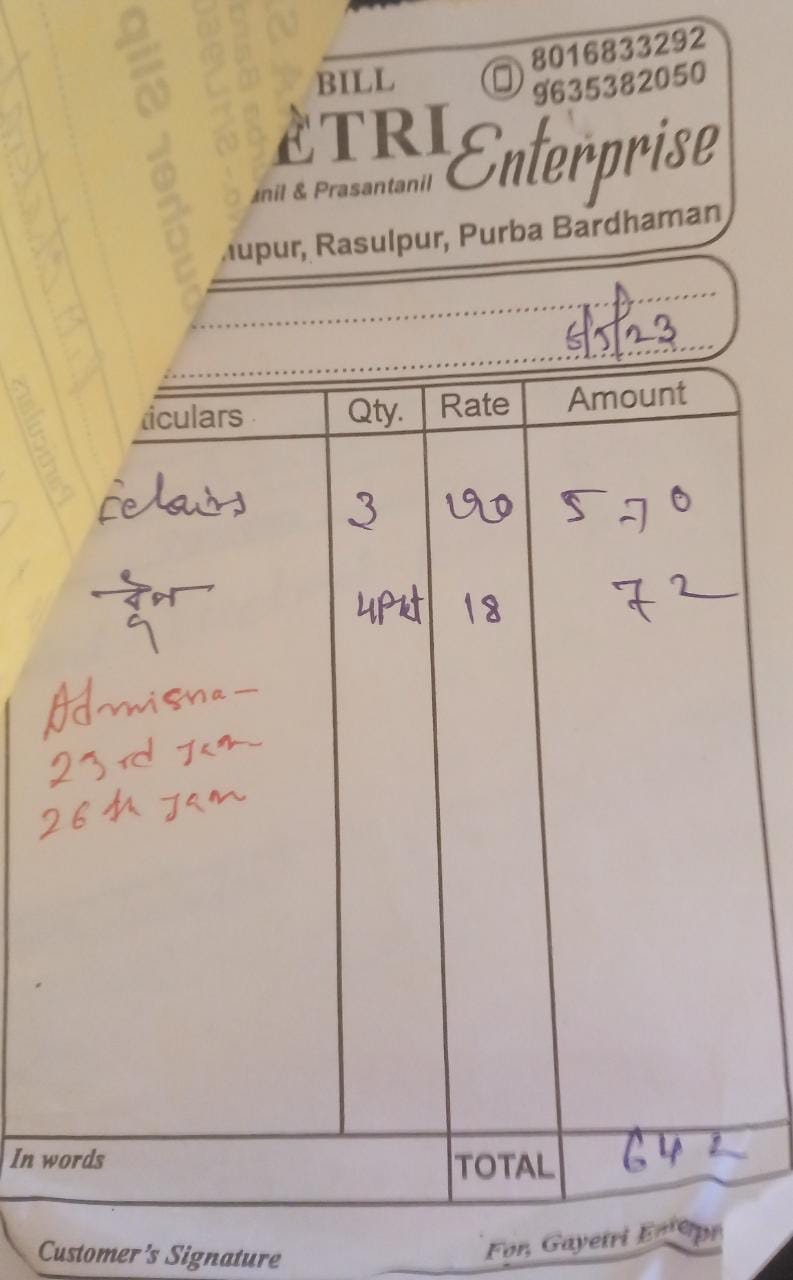 BILL
8016833292
9635382050
ETRI Enterprise
anil & Prasantanil
nupur, Rasulpur, Purba Bardhaman
6/5/23
ticulars Qty. Rate Amount
Eclairs 3 190 570
4Pkt 18 72
Admisna-
23rd Jan
26th Jan
In words TOTAL 642
Customer's Signature
For, Gayetri Enterpr